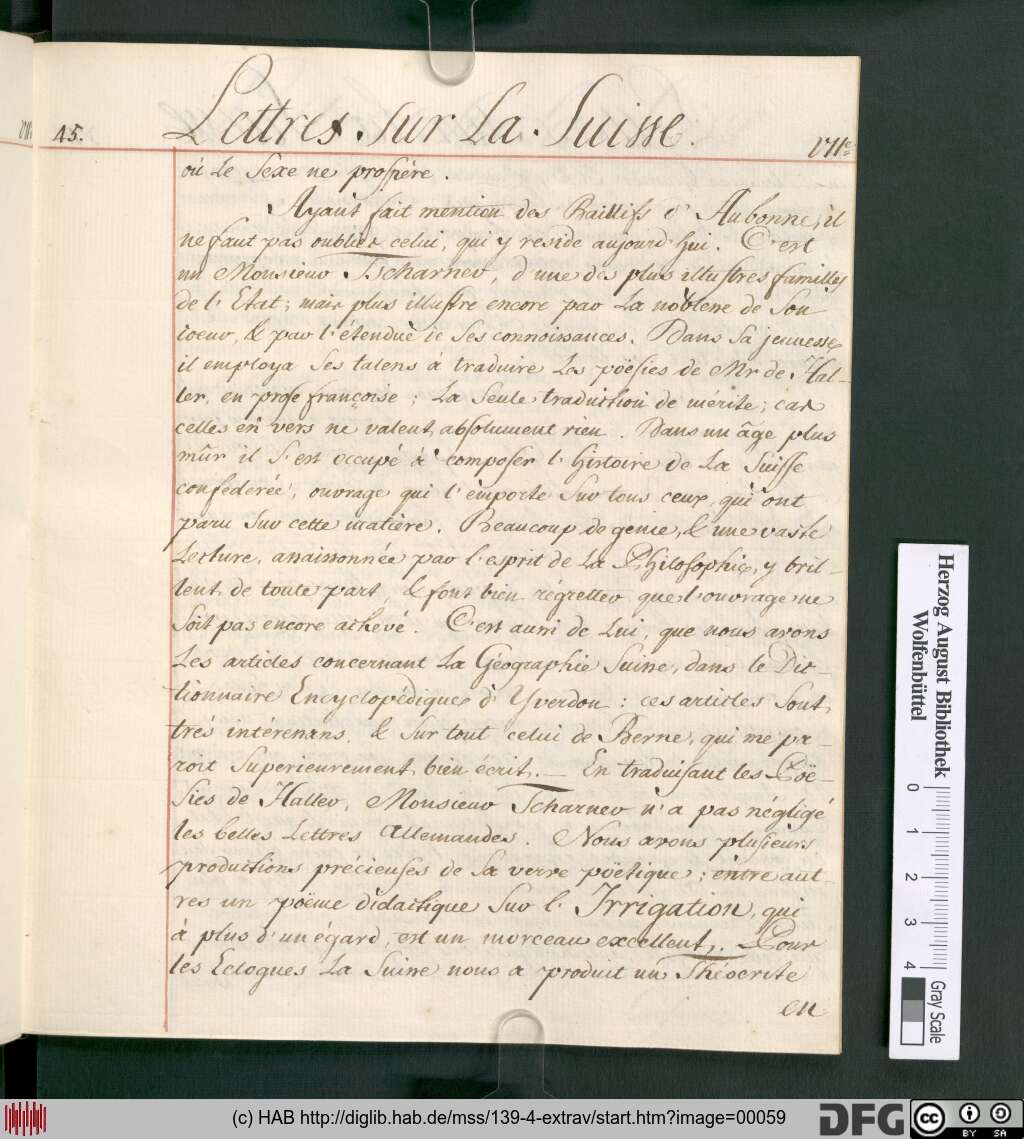 45. Lettres sur La Suisse. VIIe
où Le Sexe ne prospère.
Ayant fait mention des Baillifs d'Aubonne, il
ne faut pas oublier celui, qui y reside aujourd'hui. C'est
un Monsieur Tscharner, d'une des plus illustres familles
de l'Etat; mais plus illustre encore par La noblesse de Son
coeur, & par l'étenduë de Ses connoissances. Dans Sa jeunesse
il employa Ses talens à traduire Les poësies de Mr de Hal-
ler, en prose françoise; La Seule traduction de mérite; car
celles en vers ne valent absolument rien. Dans un âge plus
mûr il s'est occupé à composer l'histoire de La Suisse
confederée, ouvrage qui l'emporte Sur tous ceux, qui ont
paru Sur cette matière. Beaucoup de genie, & une vaste
Lecture, assaisonnée par l'esprit de La Philosophie, y bril-
lent de toute part, & font bien régretter que l'ouvrage ne
Soit pas encore achevé. C'est aussi de Lui, que nous avons
Les articles concernant La Géographie Suisse, dans le Dic-
tionnaire Encyclopédique d'Yverdon: ces articles Sont
très intéressans, & Sur tout celui de Berne, qui me pa-
roit Superieurement bien écrit. — En traduisant les Poë-
sies de Haller, Monsieur Tscharner n'a pas négligé
les belles Lettres allemandes. Nous avons plusieurs
productions précieuses de Sa verve poëtique; entre aut-
res un poëme didactique Sur l'Irrigation, qui
à plus d'un égard, est un morceau excellent. Pour
les Eclogues La Suisse nous a produit un Théocrite
en
Herzog August Bibliothek
Wolfenbüttel
0 1 2 3 4
Gray Scale
(c) HAB http://diglib.hab.de/mss/139-4-extrav/start.htm?image=00059
DFG
cc BY SA